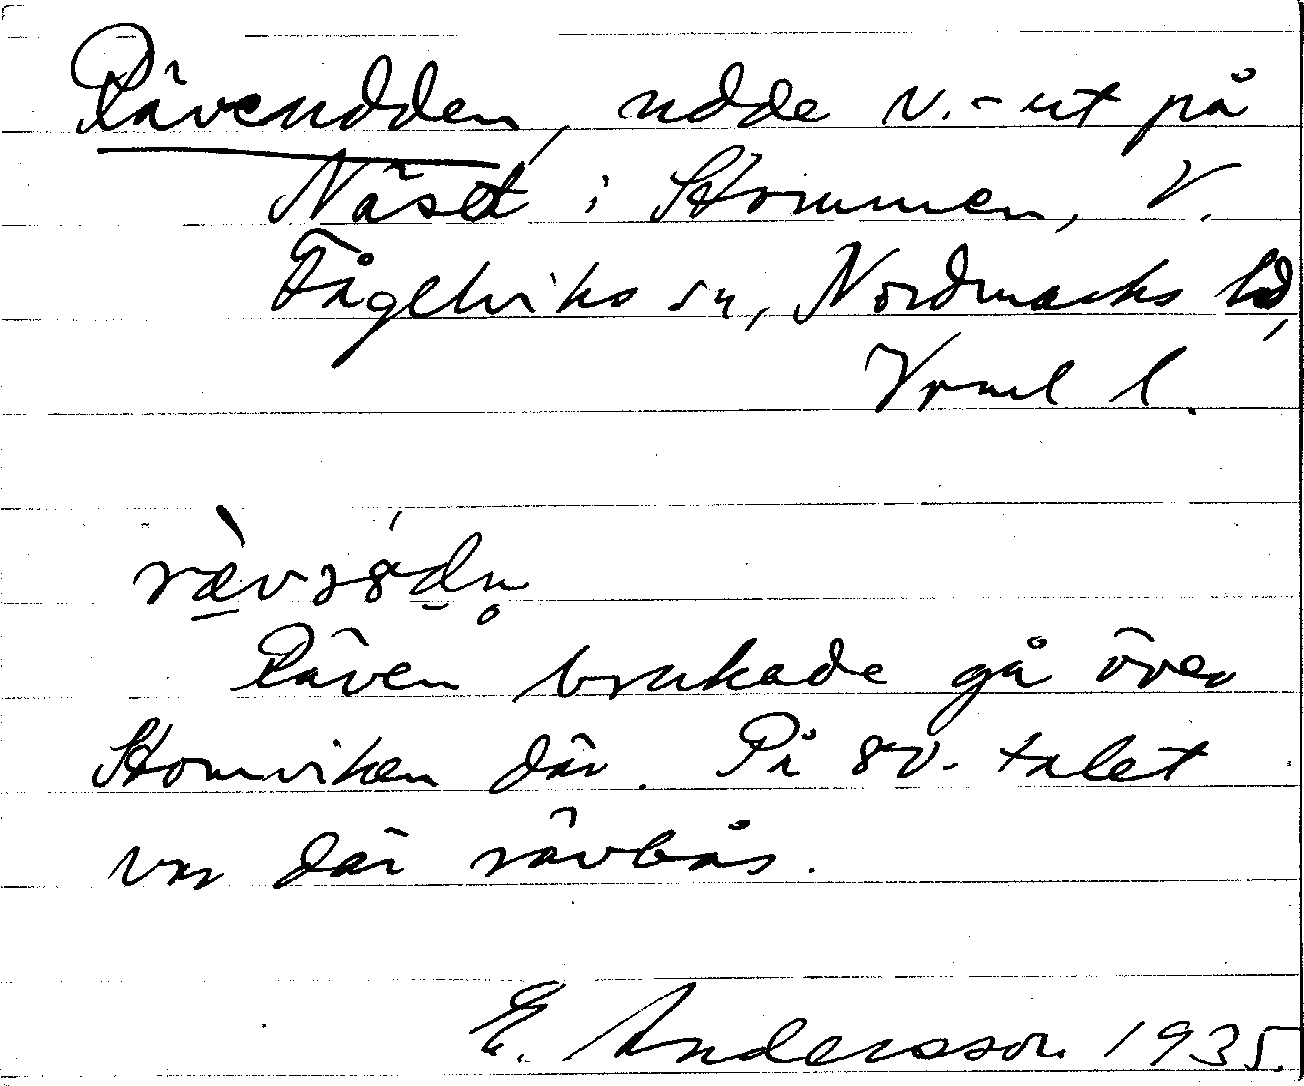 Rävudden, udde v.-ut på
Näset i Stommen, V.
Fågelviks sn, Nordmarks hd,
Vrml l.
Räven brukade gå över
Stomviken där. På 80-talet
var där rävbås.
E. Andersson 1935.